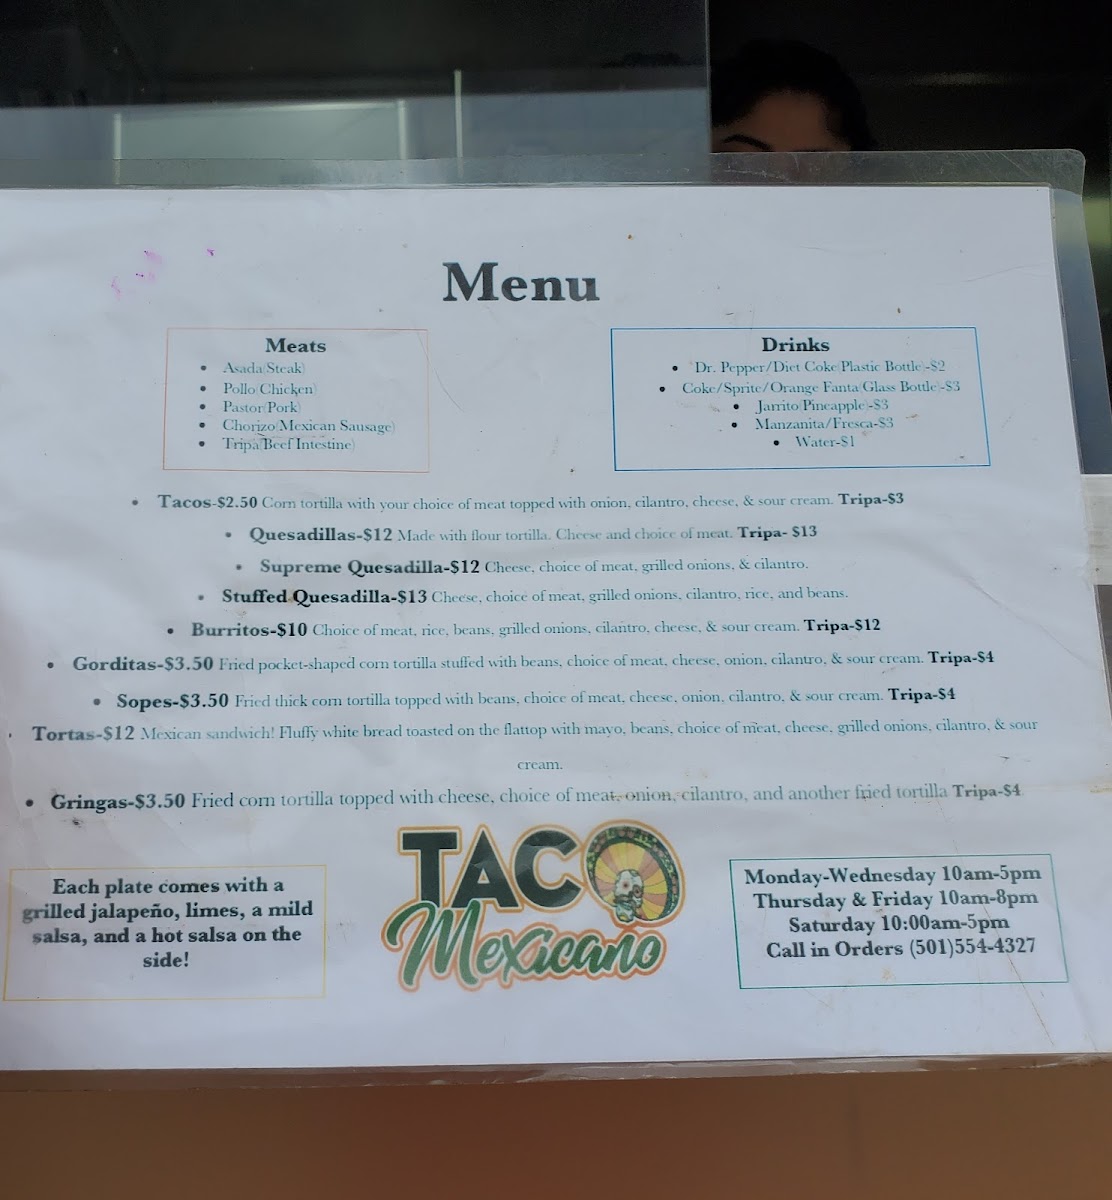 Menu
Meats
• Asada(Steak)
• Pollo(Chicken)
• Pastor(Pork)
• Chorizo(Mexican Sausage)
• Tripa(Beef Intestine)
Drinks
• Dr. Pepper/Diet Coke(Plastic Bottle)-$2
• Coke/Sprite/Orange Fanta(Glass Bottle)-$3
• Jarrito(Pineapple)-$3
• Manzanita/Fresca-$3
• Water-$1
• Tacos-$2.50 Corn tortilla with your choice of meat topped with onion, cilantro, cheese, & sour cream. Tripa-$3
• Quesadillas-$12 Made with flour tortilla. Cheese and choice of meat. Tripa- $13
• Supreme Quesadilla-$12 Cheese, choice of meat, grilled onions, & cilantro.
• Stuffed Quesadilla-$13 Cheese, choice of meat, grilled onions, cilantro, rice, and beans.
• Burritos-$10 Choice of meat, rice, beans, grilled onions, cilantro, cheese, & sour cream. Tripa-$12
• Gorditas-$3.50 Fried pocket-shaped corn tortilla stuffed with beans, choice of meat, cheese, onion, cilantro, & sour cream. Tripa-$4
• Sopes-$3.50 Fried thick corn tortilla topped with beans, choice of meat, cheese, onion, cilantro, & sour cream. Tripa-$4
• Tortas-$12 Mexican sandwich! Fluffy white bread toasted on the flattop with mayo, beans, choice of meat, cheese, grilled onions, cilantro, & sour
cream.
• Gringas-$3.50 Fried corn tortilla topped with cheese, choice of meat, onion, cilantro, and another fried tortilla Tripa-$4
Each plate comes with a
grilled jalapeño, limes, a mild
salsa, and a hot salsa on the
side!
TACO
Mexicano
Monday-Wednesday 10am-5pm
Thursday & Friday 10am-8pm
Saturday 10:00am-5pm
Call in Orders (501)554-4327